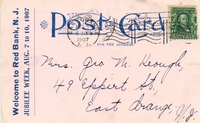 Welcome to Red Bank, N. J.
JUBILEE WEEK, AUG. 7 to 10, 1907
Post Card
FOR THE ADDRESS
1907
N. J.
Mrs. Geo M. Keough
49 Eppert St.
East Orange
N.J.